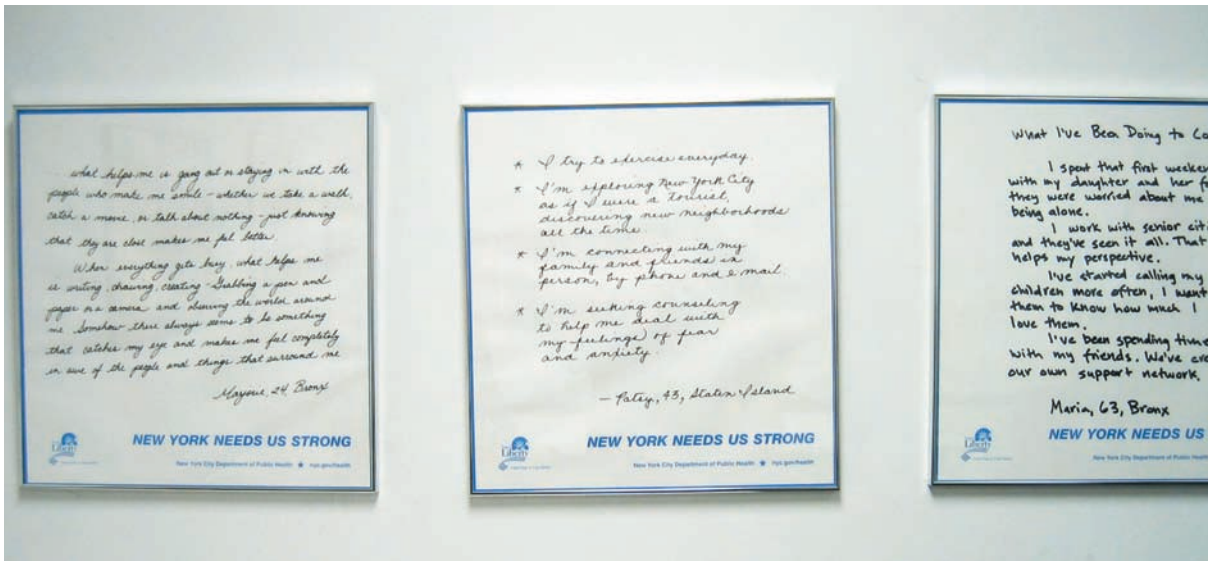 what helps me is going out or staying in with the
people who make me smile - whether we take a walk,
catch a movie, or talk about nothing - just knowing
that they are close makes me feel better.
When everything gets busy, what helps me
is writing, drawing, creating - Grabbing a pen and
paper or a camera and observing the world around
me. Somehow there always seems to be something
that catches my eye and makes me feel completely
in awe of the people and things that surround me
24, Bronx
Liberty
NEW YORK NEEDS US STRONG
New York City Department of Public Health ★ nyc.gov/health
* I try to exercise everyday.
* I'm exploring New York City
as if I were a tourist,
discovering new neighborhoods
all the time.
* I'm connecting with my
family and friends in
person, by phone and e mail.
* I'm seeking counseling
to help me deal with
my feelings of fear
and anxiety.
- Patsy, 43, Staten Island
Liberty
NEW YORK NEEDS US STRONG
New York City Department of Public Health ★ nyc.gov/health
What I've Been Doing to Co
I spent that first weeke
with my daughter and her f
they were worried about me
being alone.
I work with senior citi
and they've seen it all. That
helps my perspective.
I've started calling my
children more often, I want
them to know how much I
love them.
I've been spending time
with my friends. We've cre
our own support network.
Maria, 63, Bronx
Liberty
NEW YORK NEEDS US
New York City Department of Public Health